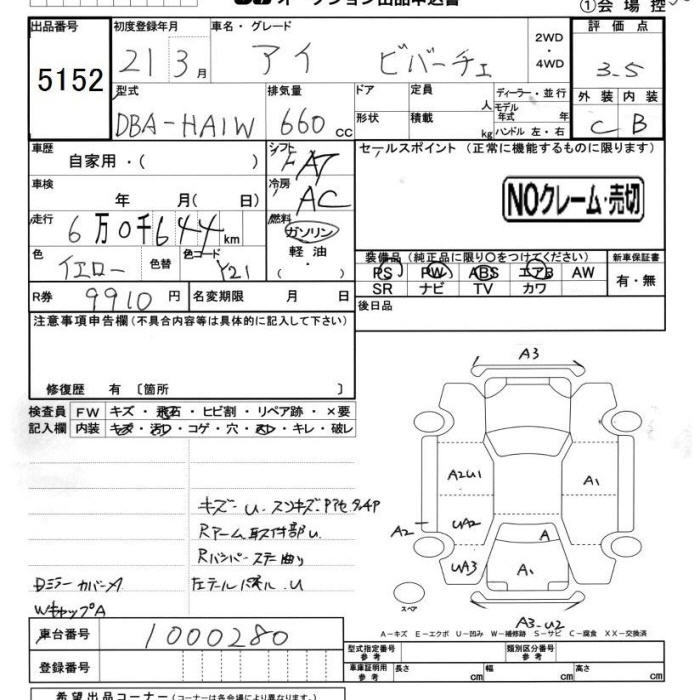 オークション出品申込書
①会場控
出品番号
5152
初度登録年月
21 3月
車名・グレード
アイ ビバーチェ
2WD
・
4WD
評価点
3.5
外装 内装
C B
型式
DBA-HA1W
排気量
660 cc
ドア
定員
人
形状
積載
kg
ディーラー・並行
モデル
年式 年
ハンドル 左・右
車歴
自家用・( )
シフト
FAT
セールスポイント (正常に機能するものに限ります)
NOクレーム・売切
車検
年 月( 日)
冷房
AC
走行
6万0千644km
燃料
ガソリン
軽油
( ・ )
色
イエロー
色替
色コード
Y21
装備品 (純正品に限り○をつけてください)
PS PW ABS エアB AW
SR ナビ TV カワ
新車保証書
有・無
R券
9910円
名変期限 月 日
後日品
注意事項申告欄 (不具合内容等は具体的に記入して下さい)
修復歴 有 〔箇所 〕
検査員
記入欄
FW キズ・飛石・ヒビ割・リペア跡・×要
内装 キズ・汚れ・コゲ・穴・スレ・キレ・破レ
キズー U
Rアーム取付部U
Rバンパーステー曲り
Dミラーカバー A
左テールパネル U
WキャップA
A3
A2U1
A1
A2
UA2
A
UA3
A1
スペア
A3-U2
A-キズ E-エクボ U-凹み W-補修跡 S-サビ C-腐食 XX-交換済
車台番号
1000280
登録番号
型式指定番号
参考
類別区分番号
参考
車庫証明用
参考
長さ cm
幅 cm
高さ cm
希望出品コーナー (コーナーは各会場により異なります。)